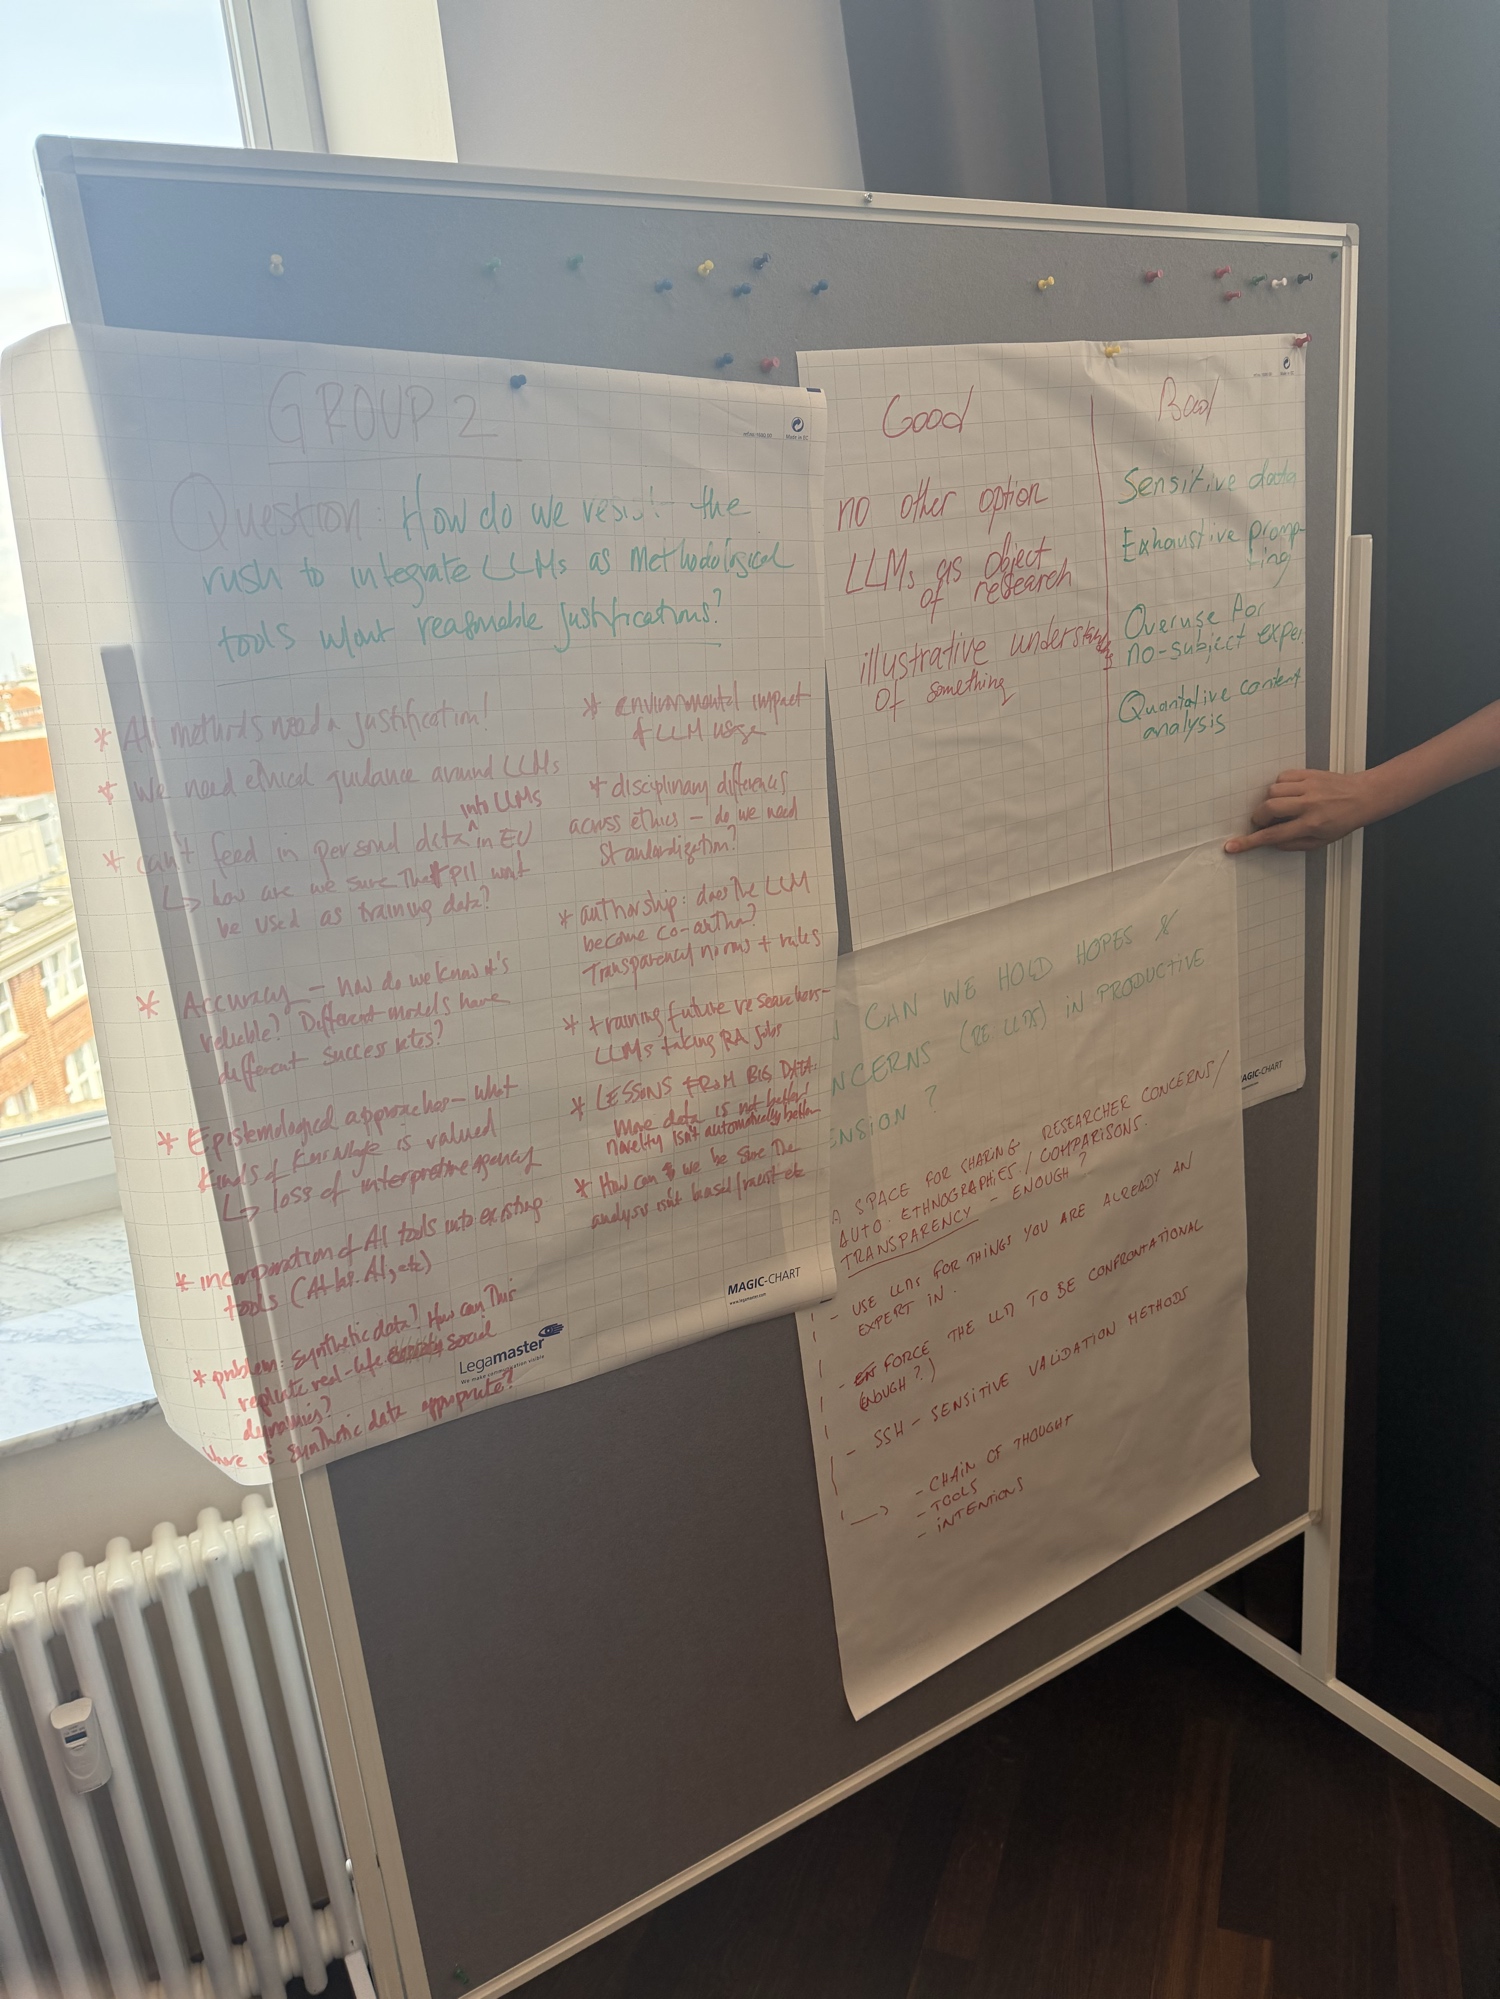 GROUP 2
Question: How do we resist the
rush to integrate LLMs as Methodological
tools w/out reasonable justifications?
* All methods need a justification!
* We need ethical guidance around LLMs
into LLMs
* can't feed in personal data ^ in EU
↳ how are we sure that PII won't
be used as training data?
* Accuracy - how do we know it's
reliable? Different models have
different success rates?
* Epistemological approaches - what
kinds of knowledge is valued
↳ loss of interpretive agency
* incorporation of AI tools into existing
tools (Atlas.AI, etc)
* problem: synthetic data? How can this
replicate real-life social
dynamics?
where is synthetic data appropriate?
* environmental impact
of LLM usage
* disciplinary differences
across ethics - do we need
standardization?
* authorship: does the LLM
become co-author?
Transparency norms + rules
* training future researchers -
LLMs taking RA jobs
* LESSONS FROM BIG DATA:
more data is not better!
novelty isn't automatically better
* How can we be sure the
analysis isn't biased/racist etc
refset-1560 00
Made in EC
MAGIC-CHART
www.legamaster.com
Legamaster
We make communication visible
Good
no other option
LLMs as object
of research
illustrative understanding
of something
Bad
Sensitive data
Exhaustive promp-
ting
Overuse for
no-subject expe
Quantative content
analysis
Made in EC
AGIC-CHART
CAN WE HOLD HOPES &
NCERNS (RE. LLMs) IN PRODUCTIVE
ENSION?
A SPACE FOR SHARING RESEARCHER CONCERNS/
AUTO-ETHNOGRAPHIES/COMPARISONS.
TRANSPARENCY - ENOUGH?
- USE LLMs FOR THINGS YOU ARE ALREADY AN
EXPERT IN.
- FORCE THE LLM TO BE CONFRONTATIONAL
(ENOUGH?)
- SSH-SENSITIVE VALIDATION METHODS
- CHAIN OF THOUGHT
- TOOLS
- INTENTIONS